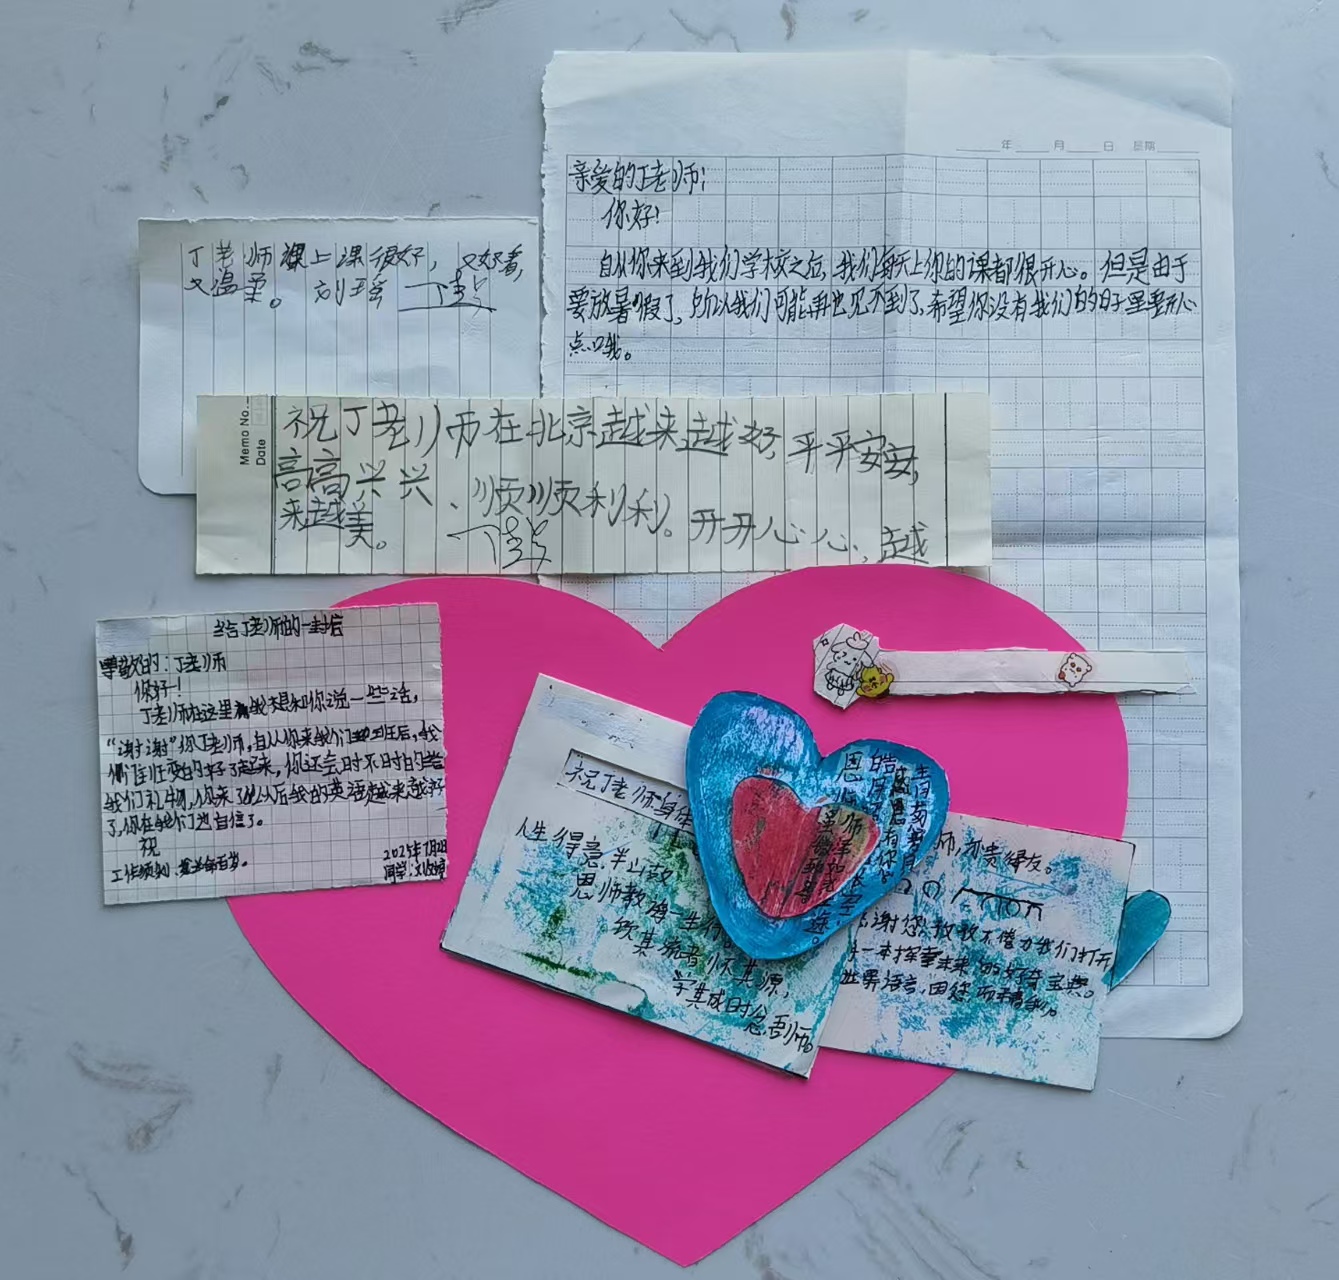 年 月 日 星期
亲爱的丁老师:
你好!
自从你来到我们学校之后,我们每天上你的课都很开心。但是由于
要放暑假了,所以我们可能再也见不到了,希望你没有我们的日子里要开心
点哦。
丁老师课上课很好,又好看,
又温柔。 刘瑶
Memo No.
Date
祝丁老师在北京越来越好,平平安安,
高高兴兴、顺顺利利。开开心心,越
来越美。
给丁老师的一封信
尊敬的:丁老师
你好!
丁老师在这里我想和你说一些话,
“谢谢”你丁老师,自从你来我们班后,我
们班变的好了起来,你还会时不时的给
我们礼物,你来了以后我的英语越来越好
了,你在我们也自信了。
祝
工作顺利,
2025年7月2日
同学:
祝丁老师身体
人生得意半山故
恩师教诲一生
饮其流者怀其源,
学其成时念吾师。
师,为贵得友。
谢您,孜孜不倦为我们打开
一本挥望未来的好奇宝典。
世界语言,因您而精彩。